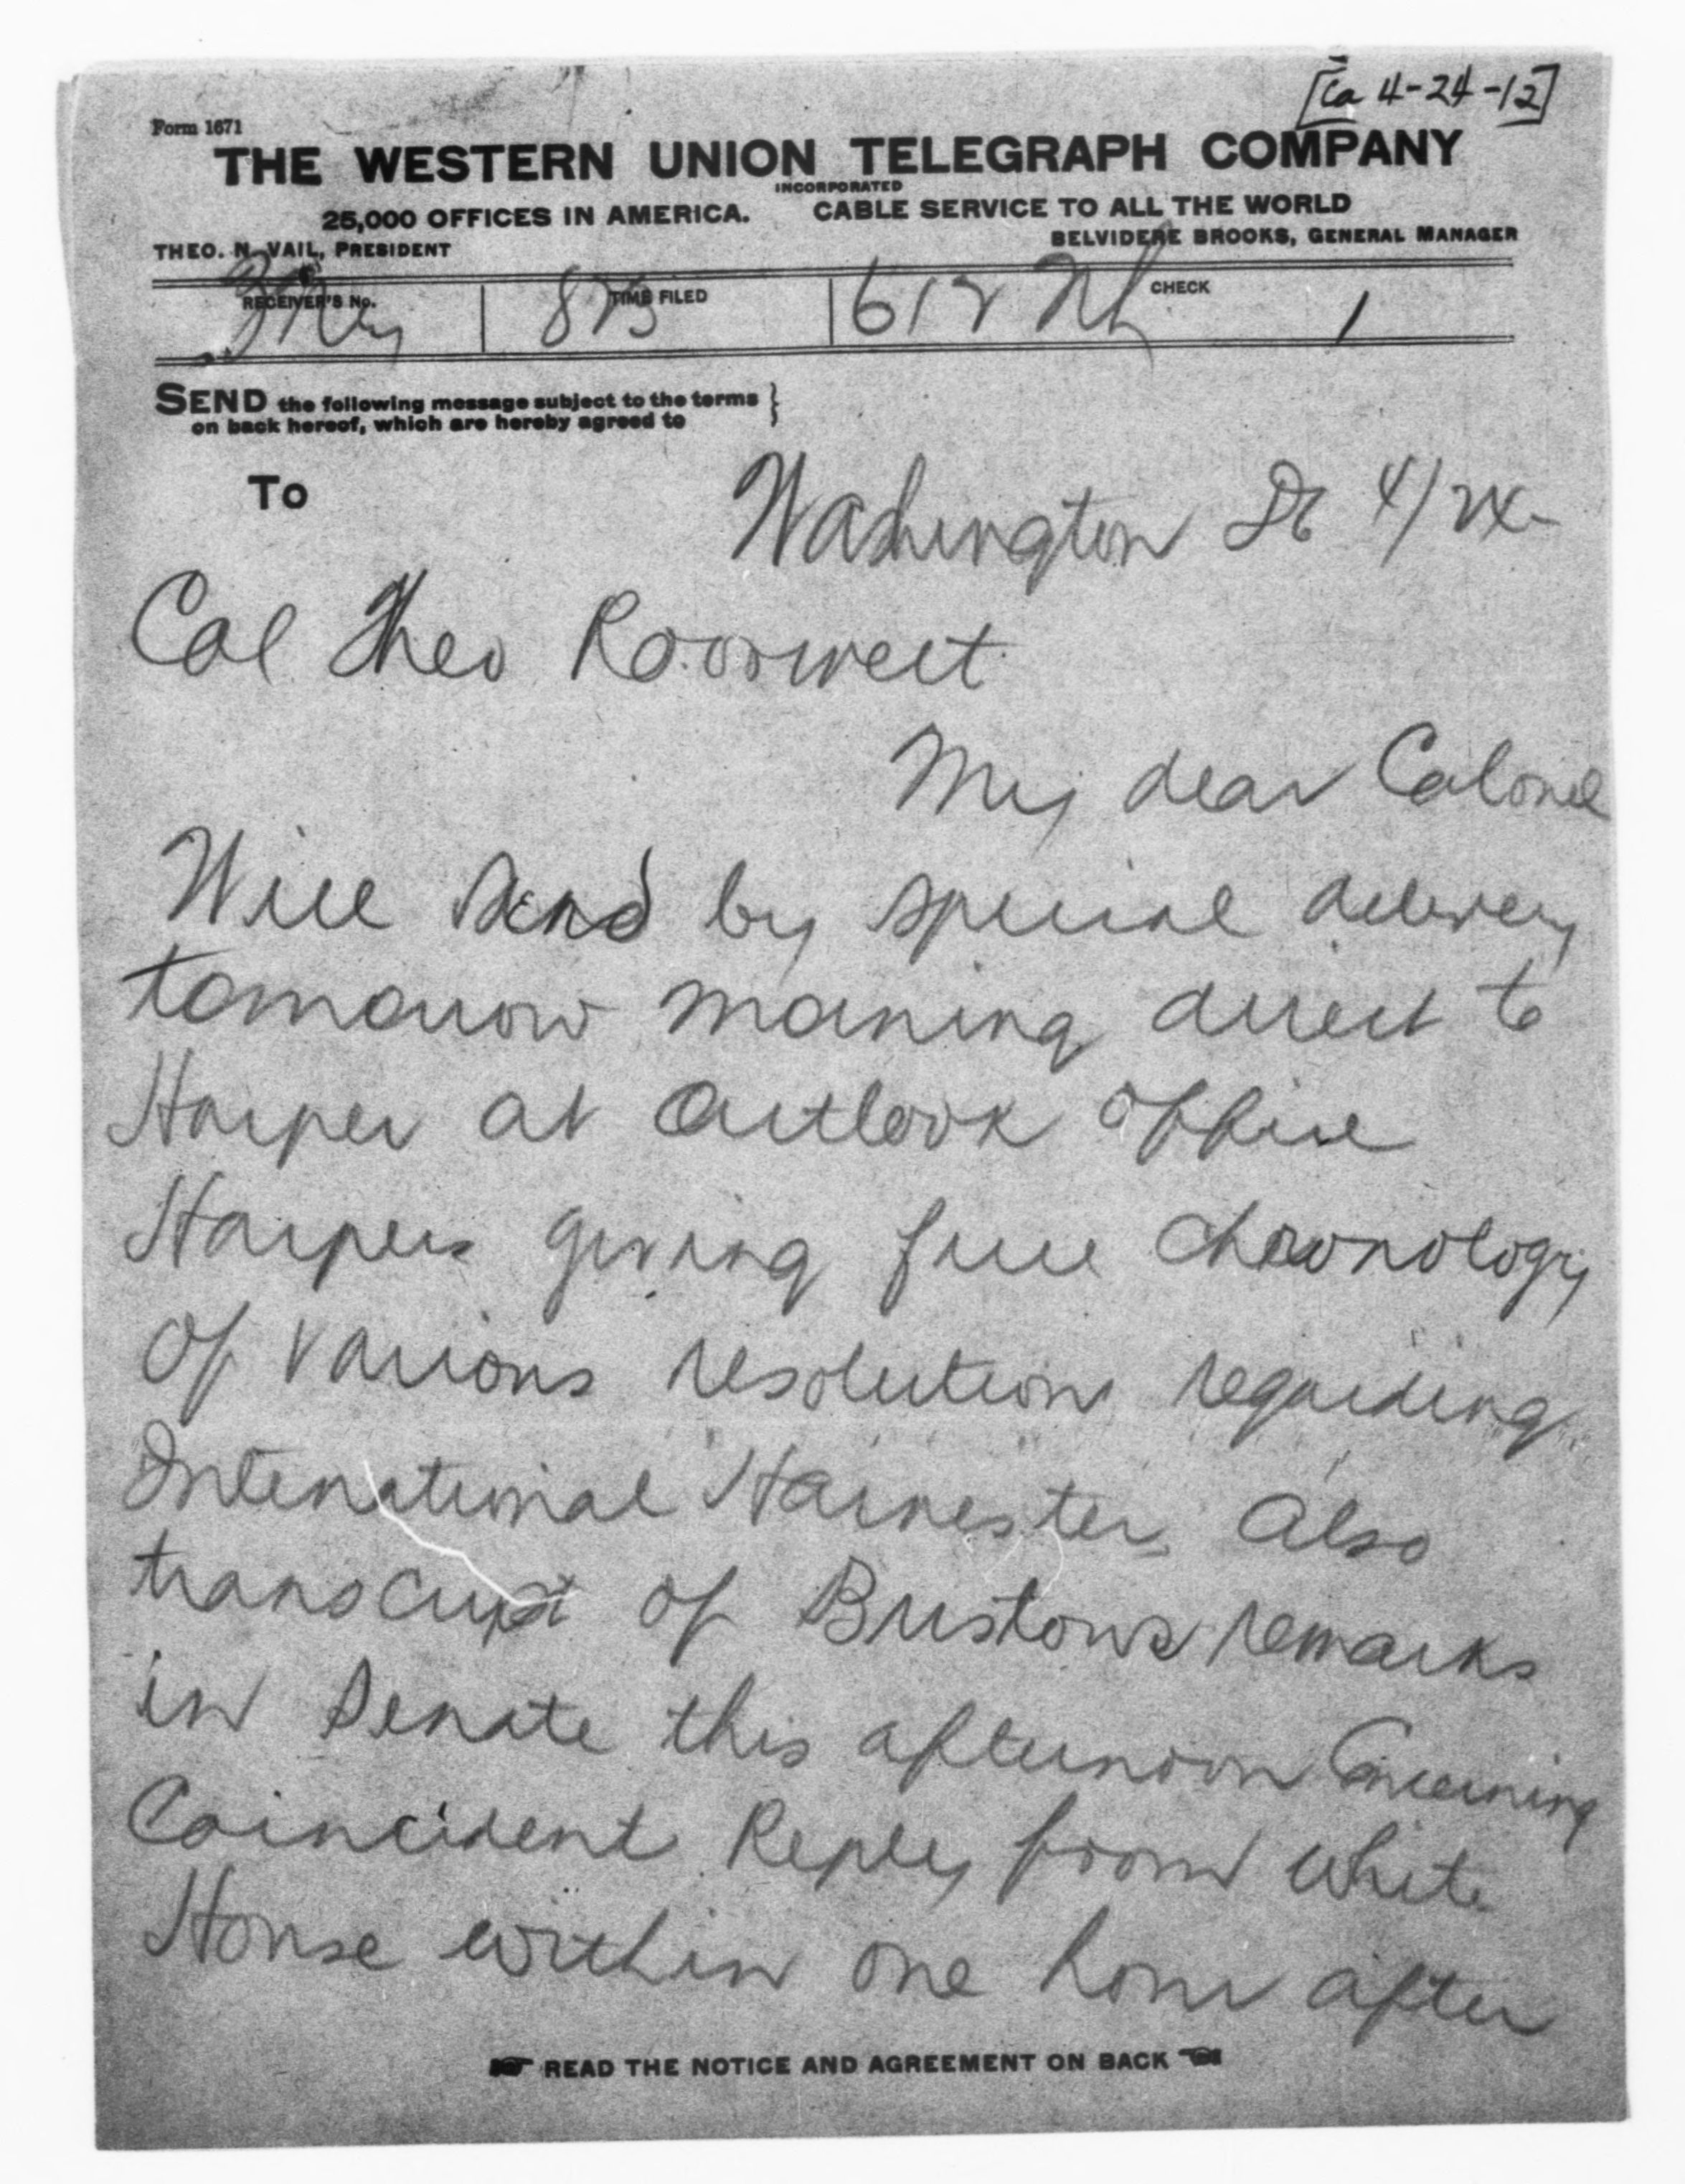 [Ca 4-24-12]
Form 1671
THE WESTERN UNION TELEGRAPH COMPANY
INCORPORATED
25,000 OFFICES IN AMERICA. CABLE SERVICE TO ALL THE WORLD
THEO. N. VAIL, PRESIDENT BELVIDERE BROOKS, GENERAL MANAGER
RECEIVER'S No. TIME FILED CHECK
612 Nh 1
SEND the following message subject to the terms
on back hereof, which are hereby agreed to
To Washington DC 4/24-
Col Theo Roosevelt
My dear Colonel
Will send by special delivery
tomorrow morning direct to
Harper at Outlook office
Harpers giving full chronology
of various resolutions regarding
International Harvester, also
transcript of Bristows remarks
in Senate this afternoon Concerning
Coincident Reply from White
House within one hour after
READ THE NOTICE AND AGREEMENT ON BACK